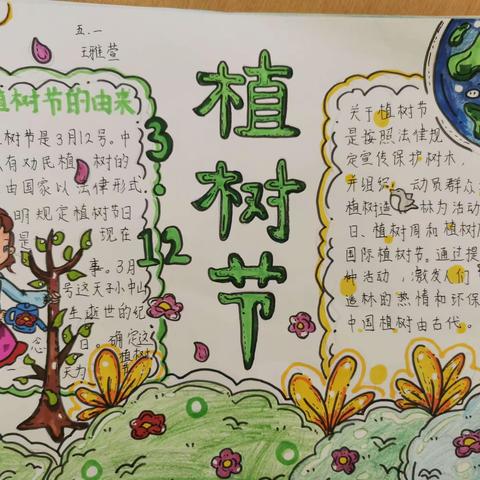 五.一
王雅萱
植树节的由来
树节是3月12号。中
有劝民植树的
由国家以法律形式
明规定植树节日
是 现在
事。3月
号这天子小中山
生逝世的纪
念日。确定这
天为植树
3.12
植树节
关于植树节
是按照法律规
定宣传保护树木,
并组织 动员群众
植树造林为活动
日、植树周和植树
国际植树节。通过提
种活动,激发人们
造林的热情和环保
中国植树由古代。